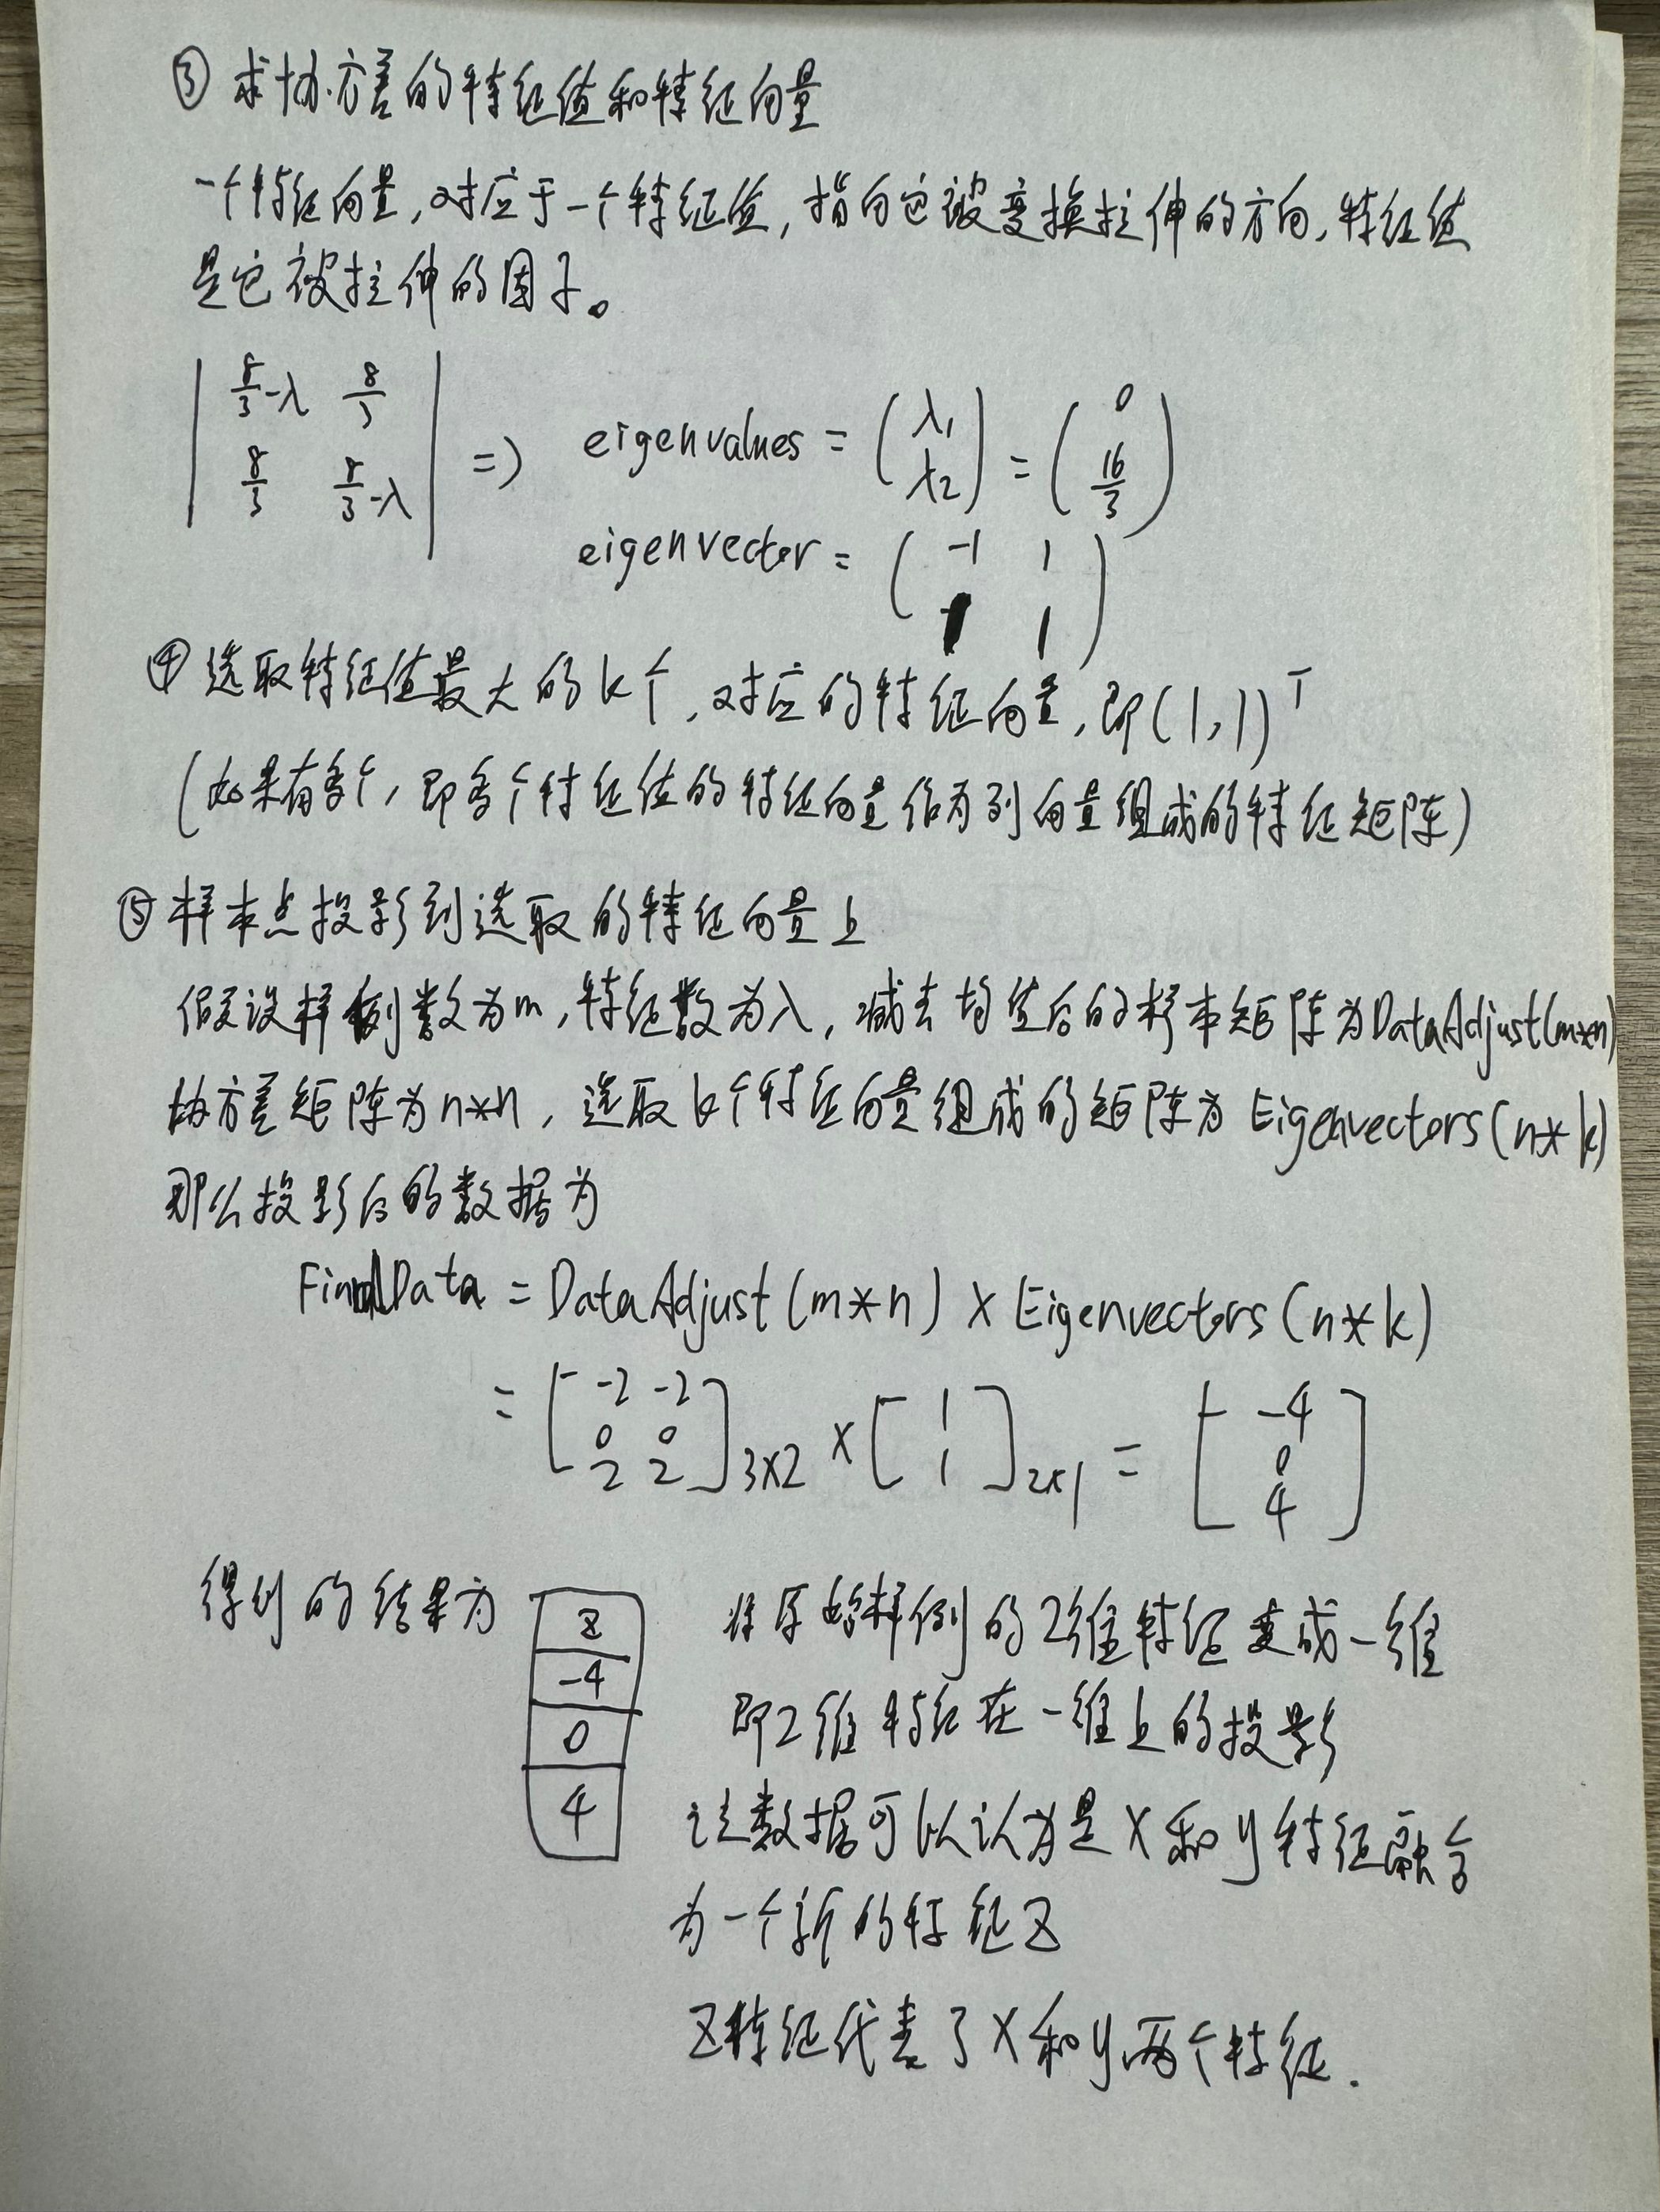 ③ 求协方差的特征值和特征向量
一个特征向量,对应于一个特征值,指向它被变换拉伸的方向,特征值
是它被拉伸的因子。
| 8/3-λ 8/3 |
| 8/3 8/3-λ | => eigenvalues = (λ1 λ2) = (0 16/3)
eigenvector = (-1 1
1 1)
④ 选取特征值最大的k个,对应的特征向量,即(1,1)^T
(如果有多个,即多个特征值的特征向量作为列向量组成的特征矩阵)
⑤ 样本点投影到选取的特征向量上
假设样例数为m,特征数为入,减去均值后的样本矩阵为DataAdjust(m*n)
协方差矩阵为n*n,选取k个特征向量组成的矩阵为Eigenvectors(n*k)
那么投影后的数据为
FinalData = DataAdjust(m*n) × Eigenvectors(n*k)
= [-2 -2
0 0
2 2]3×2 × [1
1]2×1 = [-4
0
4]
得到的结果为
z
-4
0
4
将原始样例的2维特征变成一维
即2维特征在一维上的投影
这数据可以认为是x和y特征融合
为一个新的特征z
z特征代表了x和y两个特征.